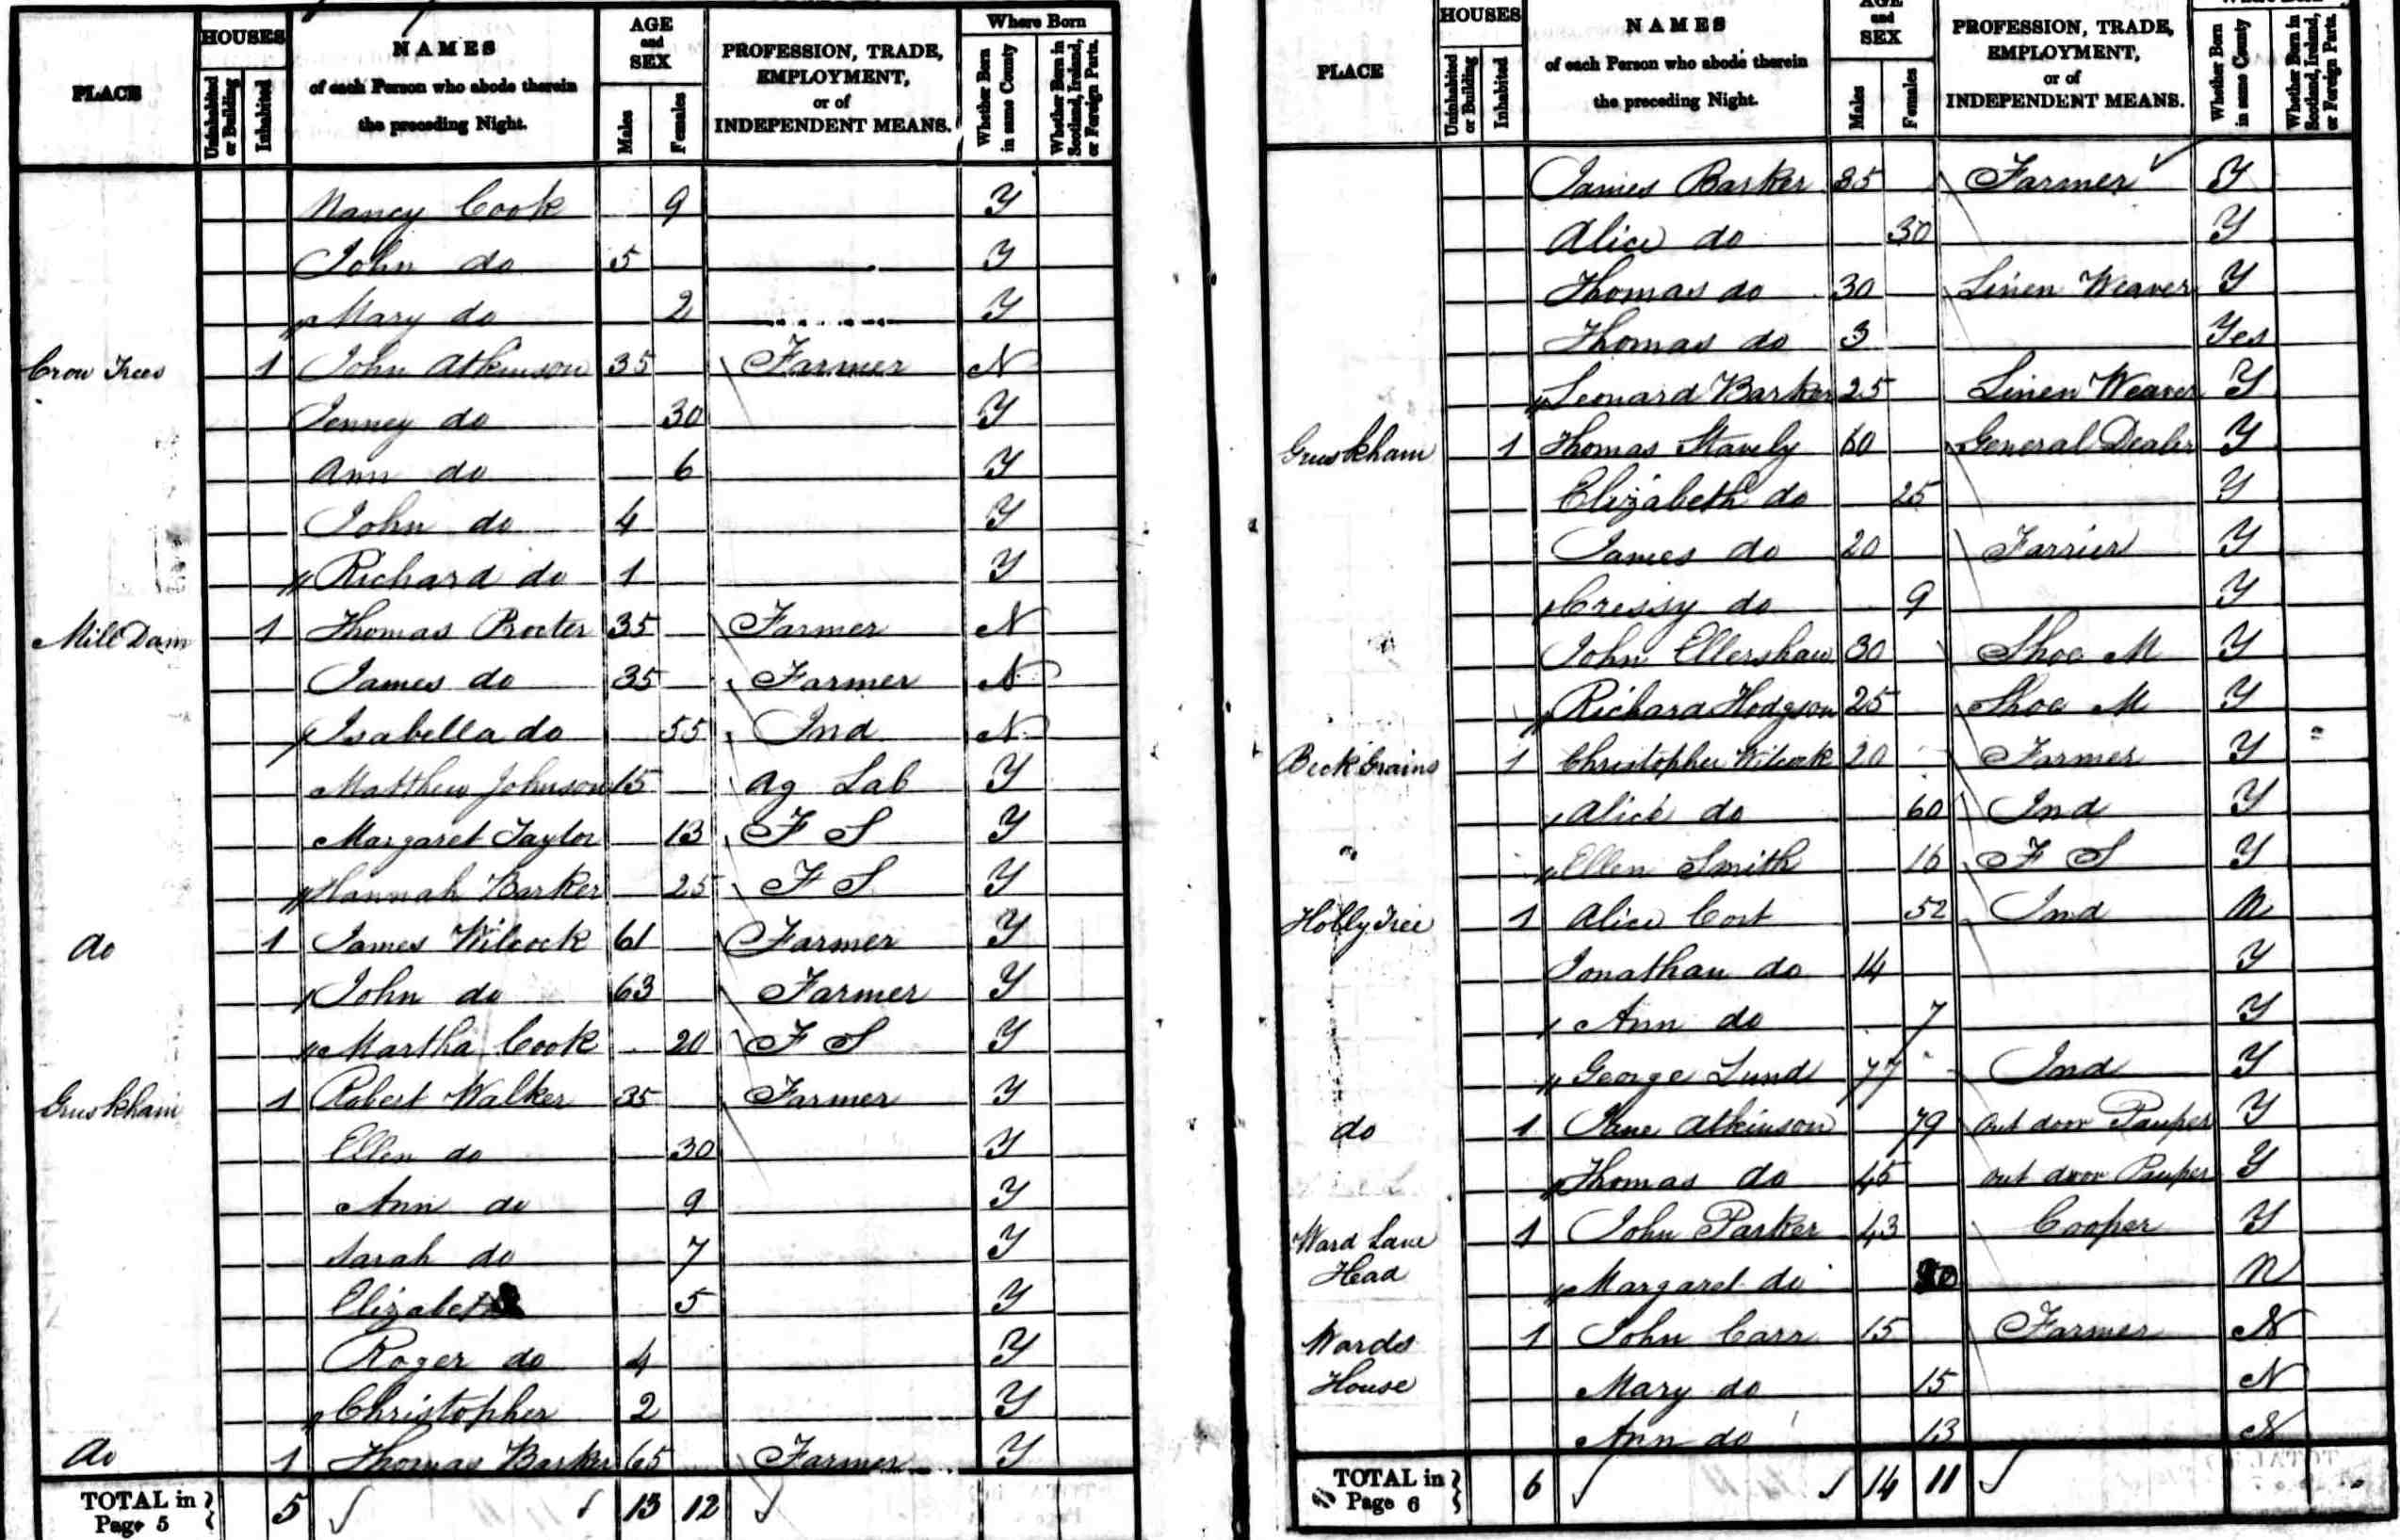 PLACE HOUSES Uninhabited or Building Inhabited NAMES of each Person who abode therein the preceding Night. AGE and SEX Males Females PROFESSION, TRADE, EMPLOYMENT, or of INDEPENDENT MEANS. Where Born Whether Born in same County Whether Born in Scotland, Ireland, or Foreign Parts.
Nancy Cook 9 Y
John do 5 Y
Mary do 2 Y
Crow Trees 1 John Atkinson 35 Farmer N
Jenney do 30 Y
Ann do 6 Y
John do 4 Y
Richard do 1 Y
Mill Dam 1 Thomas Procter 35 Farmer N
James do 35 Farmer N
Isabella do 55 Ind N
Matthew Johnson 15 Ag Lab Y
Margaret Taylor 13 F S Y
Hannah Barker 25 F S Y
do 1 James Wilcock 61 Farmer Y
John do 63 Farmer Y
Martha Cook 20 F S Y
Gruskham 1 Robert Walker 35 Farmer Y
Ellen do 30 Y
Ann do 9 Y
Sarah do 7 Y
Elizabeth 5 Y
Roger do 4 Y
Christopher 2 Y
do 1 Thomas Barker 65 Farmer Y
TOTAL in Page 5 5 13 12
PLACE HOUSES Uninhabited or Building Inhabited NAMES of each Person who abode therein the preceding Night. AGE and SEX Males Females PROFESSION, TRADE, EMPLOYMENT, or of INDEPENDENT MEANS. Whether Born in same County Whether Born in Scotland, Ireland, or Foreign Parts.
James Barker 35 Farmer Y
Alice do 30 Y
Thomas do 30 Linen Weaver Y
Thomas do 3 Yes
Leonard Barker 25 Linen Weaver Y
Gruskham 1 Thomas Stavely 60 General Dealer Y
Elizabeth do 25 Y
James do 20 Farrier Y
Cressy do 9 Y
John Ellershaw 30 Shoe M Y
Richard Hodgson 25 Shoe M Y
Beck Grains 1 Christopher Wilcock 20 Farmer Y
Alice do 60 Ind Y
Ellen Smith 16 F S Y
Holly Tree 1 Alice Cort 52 Ind N
Jonathan do 14 Y
Ann do 7 Y
George Lund 77 Ind Y
do 1 Jane Atkinson 79 Out door Pauper Y
Thomas do 45 Out door Pauper Y
Ward Lane Head 1 John Parker 43 Cooper Y
Margaret do N
Wards House 1 John Carr 15 Farmer N
Mary do 15 N
Ann do 13 N
TOTAL in Page 6 6 14 11